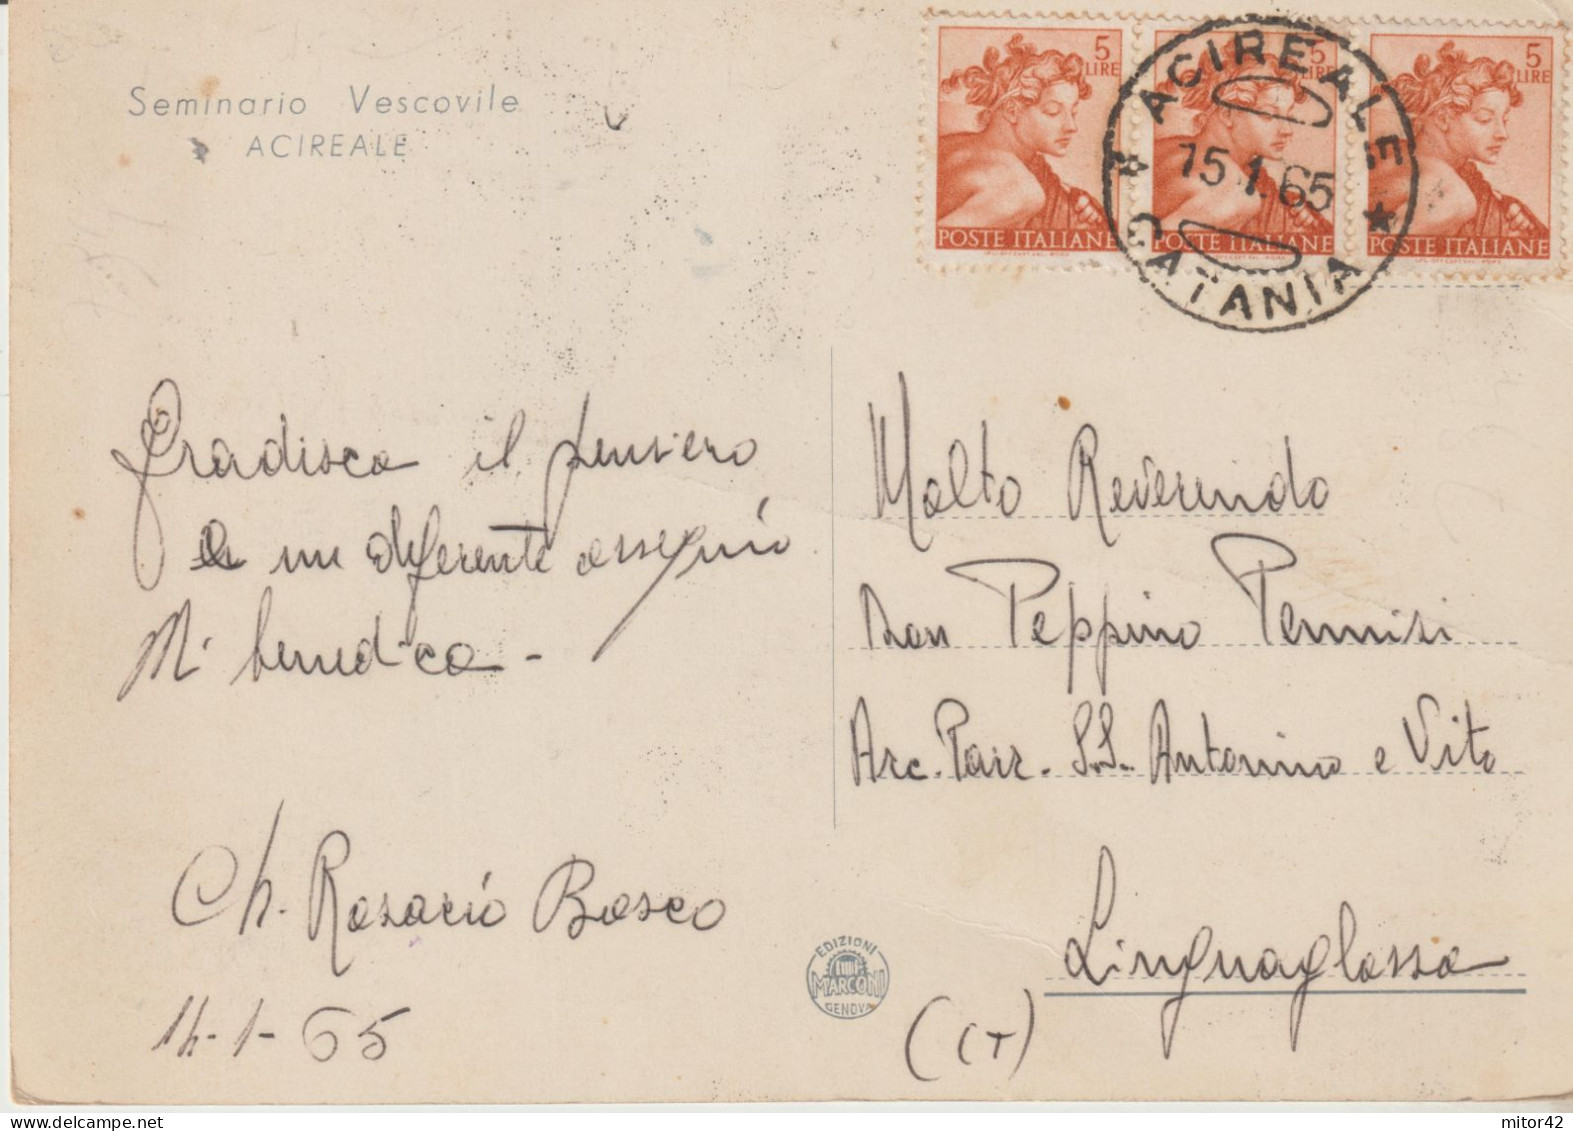 Seminario Vescovile
ACIREALE
5
LIRE
POSTE ITALIANE
5
LIRE
POSTE ITALIANE
5
LIRE
POSTE ITALIANE
ACIREALE
15.1.65
CATANIA
Gradisca il pensiero
e un deferente ossequio
Mi benedica -
Ch. Rosario Bosco
14-1-65
Molto Reverendo
Don Peppino Pennisi
Arc. Parr. S.S. Antonino e Vito
Linguaglossa
(CT)
EDIZIONI
MARCONI
GENOVA
mitor42